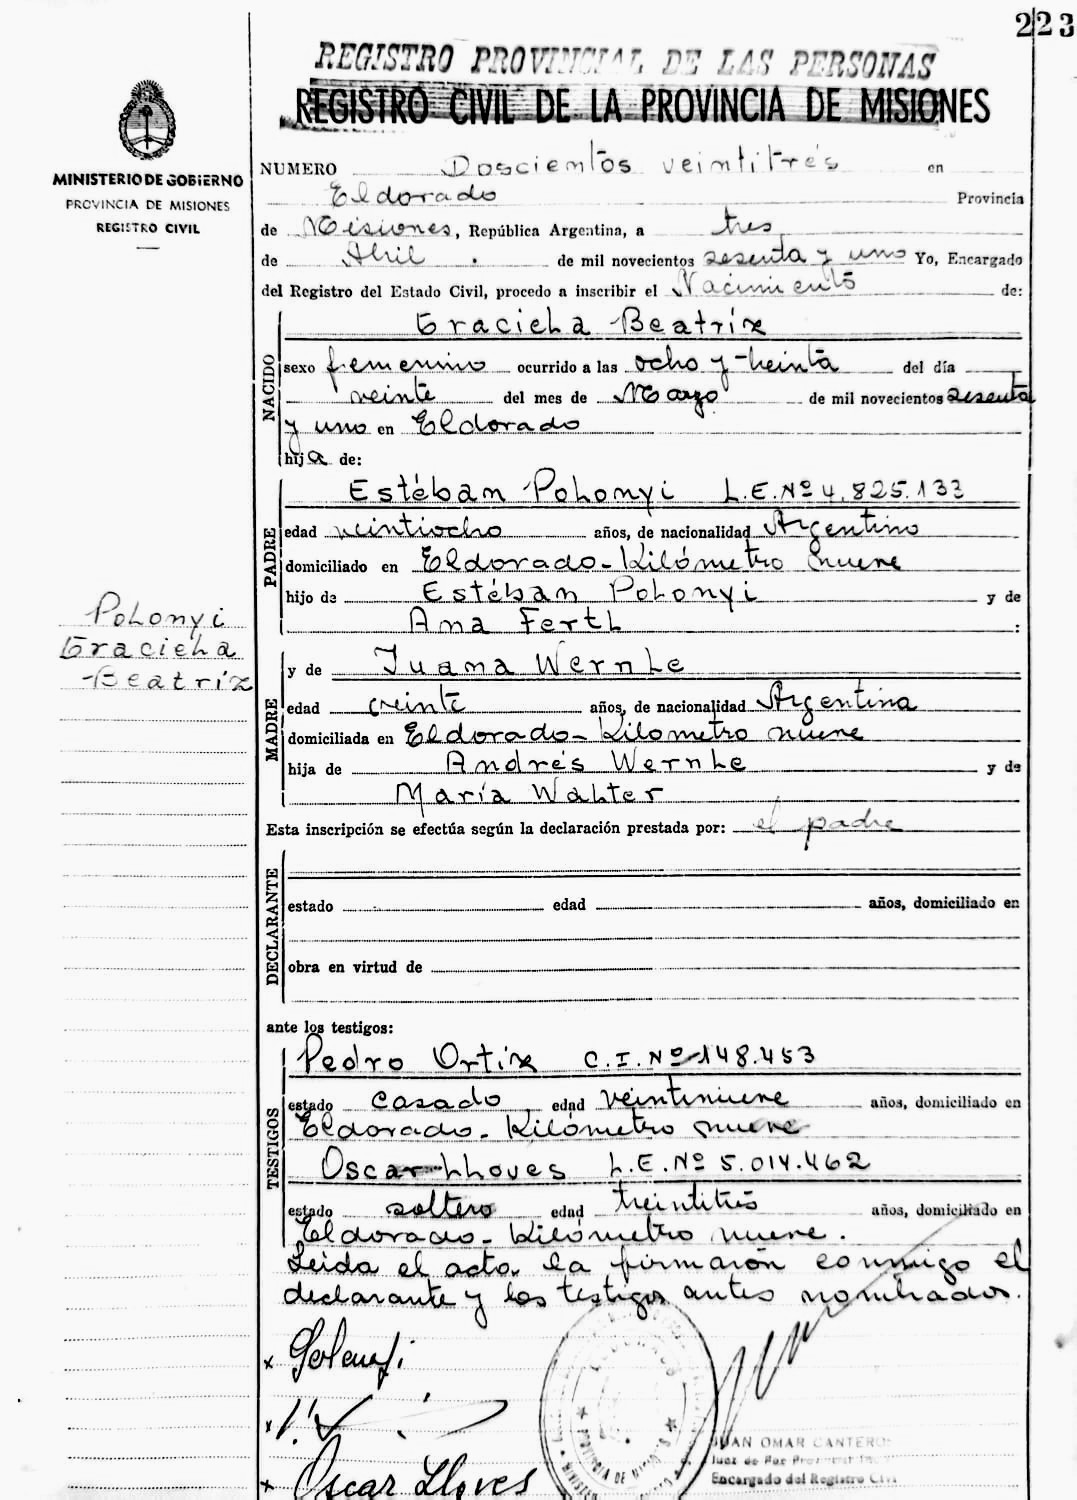 223
REGISTRO PROVINCIAL DE LAS PERSONAS
REGISTRO CIVIL DE LA PROVINCIA DE MISIONES
MINISTERIO DE GOBIERNO
PROVINCIA DE MISIONES
REGISTRO CIVIL
NUMERO Doscientos veintitrés en
Eldorado Provincia
de Misiones, República Argentina, a tres
de Abril de mil novecientos sesenta y uno Yo, Encargado
del Registro del Estado Civil, procedo a inscribir el Nacimiento de:
NACIDO
Graciela Beatríz
sexo femenino ocurrido a las ocho y treinta del día
veinte del mes de Marzo de mil novecientos sesenta
y uno en Eldorado
hija de:
PADRE
Estéban Polonyi L.E.Nº 4.825.133
edad veintiocho años, de nacionalidad Argentino
domiciliado en Eldorado - Kilómetro nueve
hijo de Estéban Polonyi y de
Ana Fertl :
Polonyi
Graciela
Beatríz
MADRE
y de Juana Wernle
edad veinte años, de nacionalidad Argentina
domiciliada en Eldorado - Kilometro nueve
hija de Andrés Wernle y de
María Walter
Esta inscripción se efectúa según la declaración prestada por: el padre
DECLARANTE
estado edad años, domiciliado en
obra en virtud de
ante los testigos:
TESTIGOS
Pedro Ortíz C.I.Nº 148.453
estado casado edad veintinueve años, domiciliado en
Eldorado - Kilómetro nueve
Oscar Lloves L.E.Nº 5.014.462
estado soltero edad treintitrés años, domiciliado en
Eldorado - Kilómetro nueve.
Leida el acta, la firmaron conmigo el
declarante y los testigos antes nombrados.
x Polonyi
x
x Oscar Lloves
PROVINCIA DE MISIONES
JUAN OMAR CANTEROS
Juez de Paz
Encargado del Registro Civil